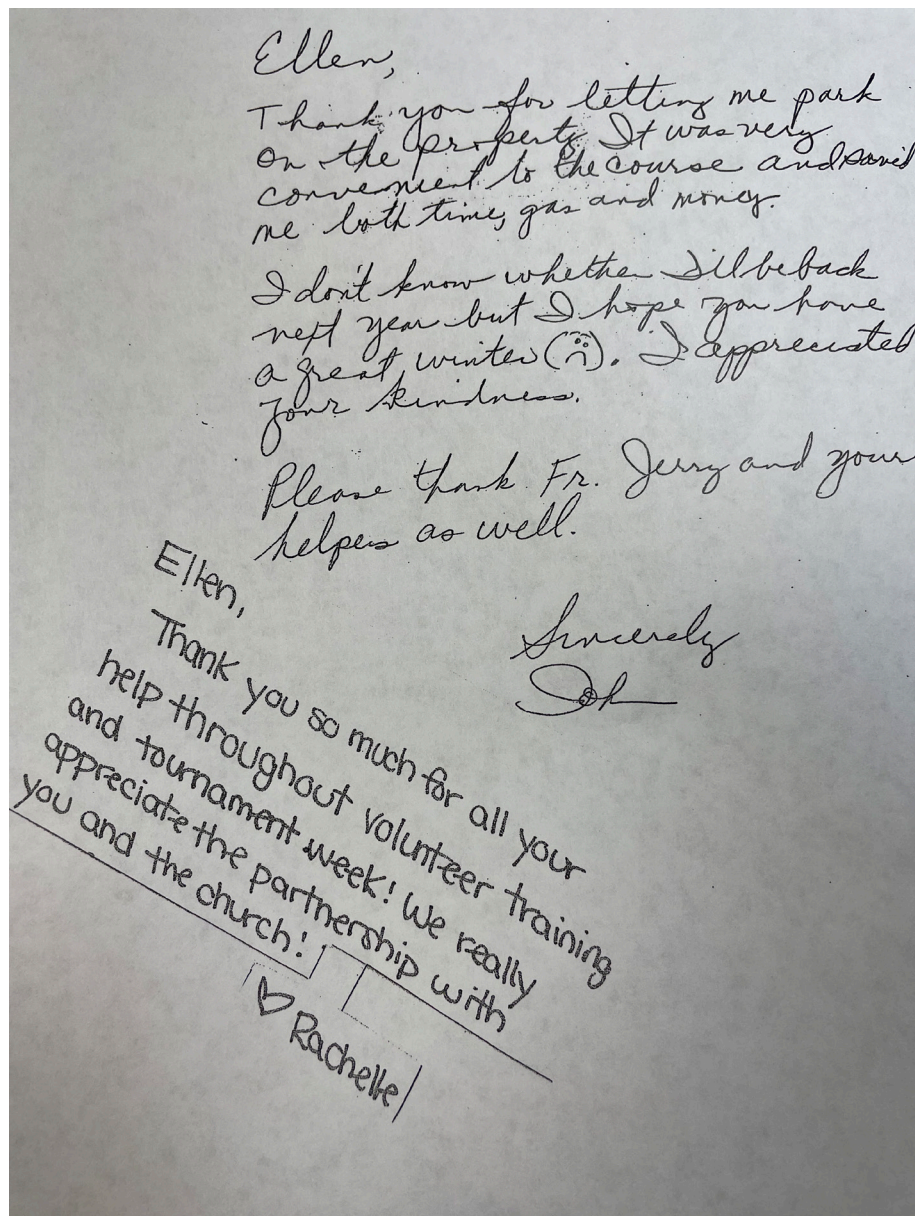 Ellen,
Thank you for letting me park
on the property. It was very
convenient to the course and saved
me both time, gas and money.
I don't know whether I'll be back
next year but I hope you have
a great winter (☹). I appreciated
your kindness.
Please thank Fr. Jerry and your
helpers as well.
Sincerely
Ellen,
Thank you so much for all your
help throughout volunteer training
and tournament week! We really
appreciate the partnership with
you and the church!
♡ Rachelle